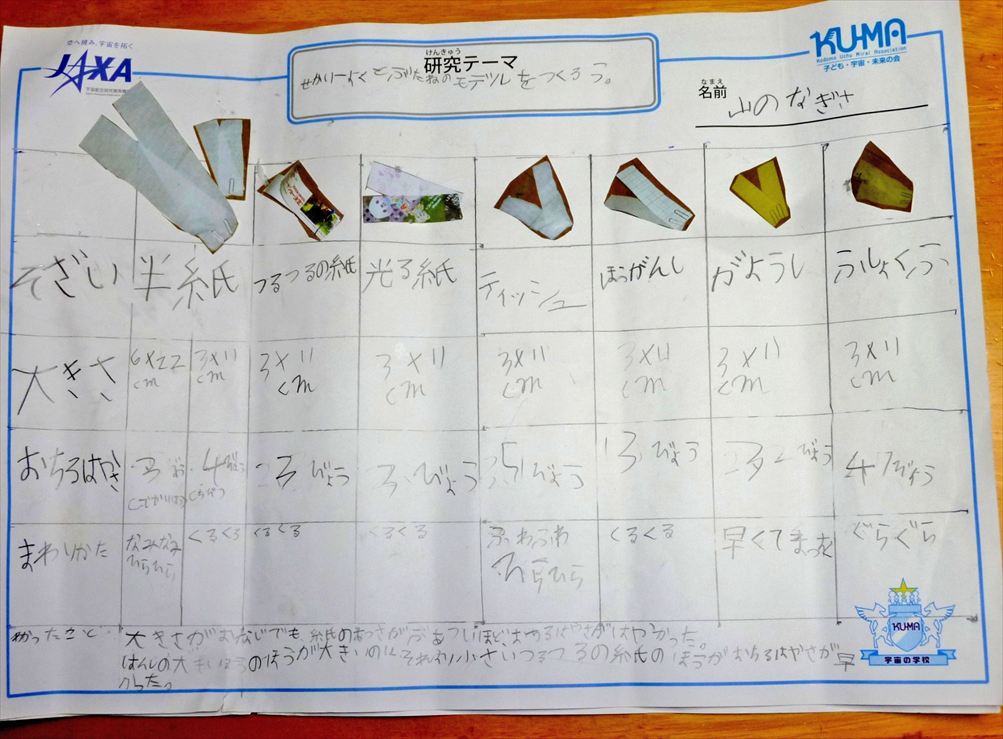 空へ挑み、宇宙を拓く
JAXA
けんきゅう
研究テーマ
せかい一よくとぶたねのモデルをつくろう。
KU-MA
Kodomo Uchu Mirai Association
子ども・宇宙・未来の会
なまえ
名前
山のなぎさ
そざい 半紙 つるつるの紙 光る紙 ティッシュ ほうがんし がようし ふしょくふ
大きさ 6×22cm 3×11cm 3×11cm 3×11cm 3×11cm 3×11cm 3×11cm 3×11cm
おちるはやさ びょう びょう びょう びょう びょう びょう びょう
まわりかた なみなみひらひら くるくる くるくる くるくる ふわふわひらひら くるくる 早くてまっすぐ ぐらぐら
わかったこと
大きさがおなじでも紙のあつさがぶあついほどおちるはやさがはやかった。
はんしの大きいほうのほうが大きいのにそれより小さいつるつるの紙のほうがおちるはやさが早
かった。
KU-MA
宇宙の学校